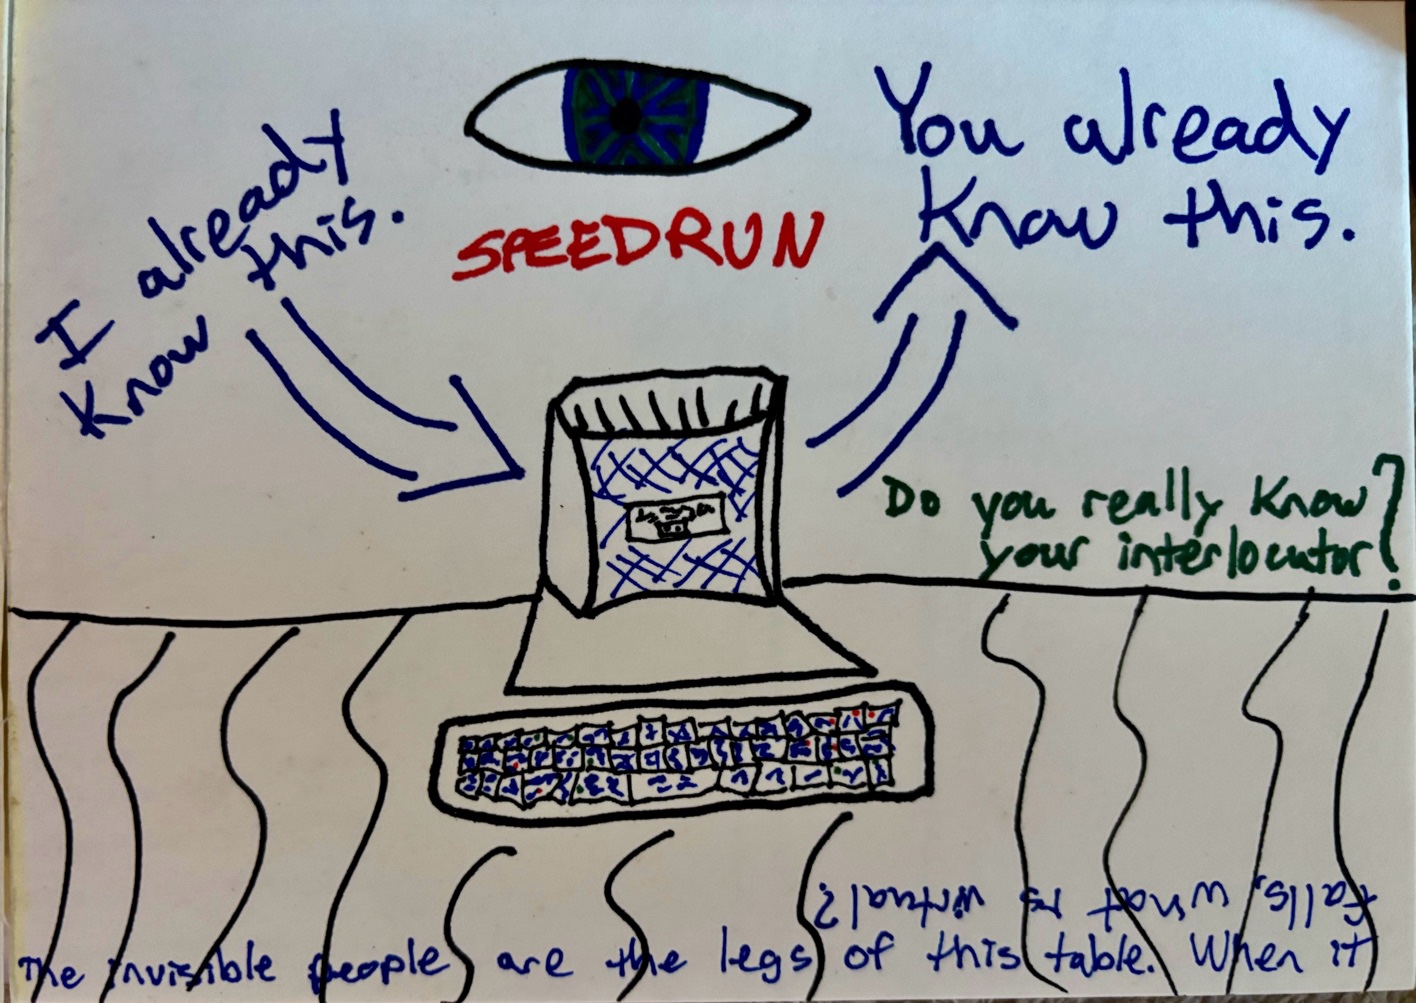 I already
know this.
SPEEDRUN
You already
know this.
Do you really know
your interlocutor?
The invisible people are the legs of this table. When it
falls, what is virtual?